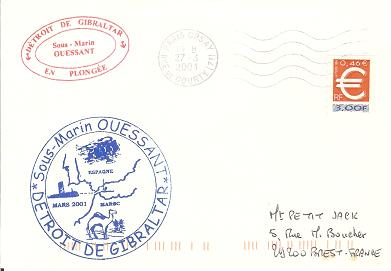 DÉTROIT DE GIBRALTAR
Sous - Marin
OUESSANT
EN PLONGÉE
PARIS ORSAY
27 - 3
2001
0,46€
€
RF
3,00F
Sous-Marin OUESSANT
ESPAGNE
MARS 2001
MAROC
DETROIT DE GIBRALTAR
Mr PETIT JACK
5 Rue M. Boucher
29200 BREST-FRANCE